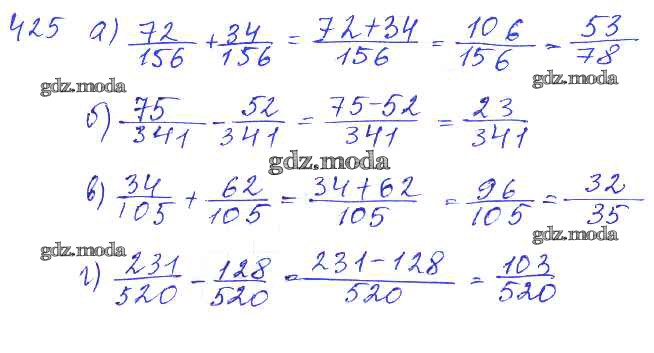 425 а) 72/156 + 34/156 = 72+34/156 = 106/156 = 53/78
gdz.moda gdz.moda
б) 75/341 - 52/341 = 75-52/341 = 23/341
gdz.moda
в) 34/105 + 62/105 = 34+62/105 = 96/105 = 32/35
gdz.moda gdz.moda
г) 231/520 - 128/520 = 231-128/520 = 103/520